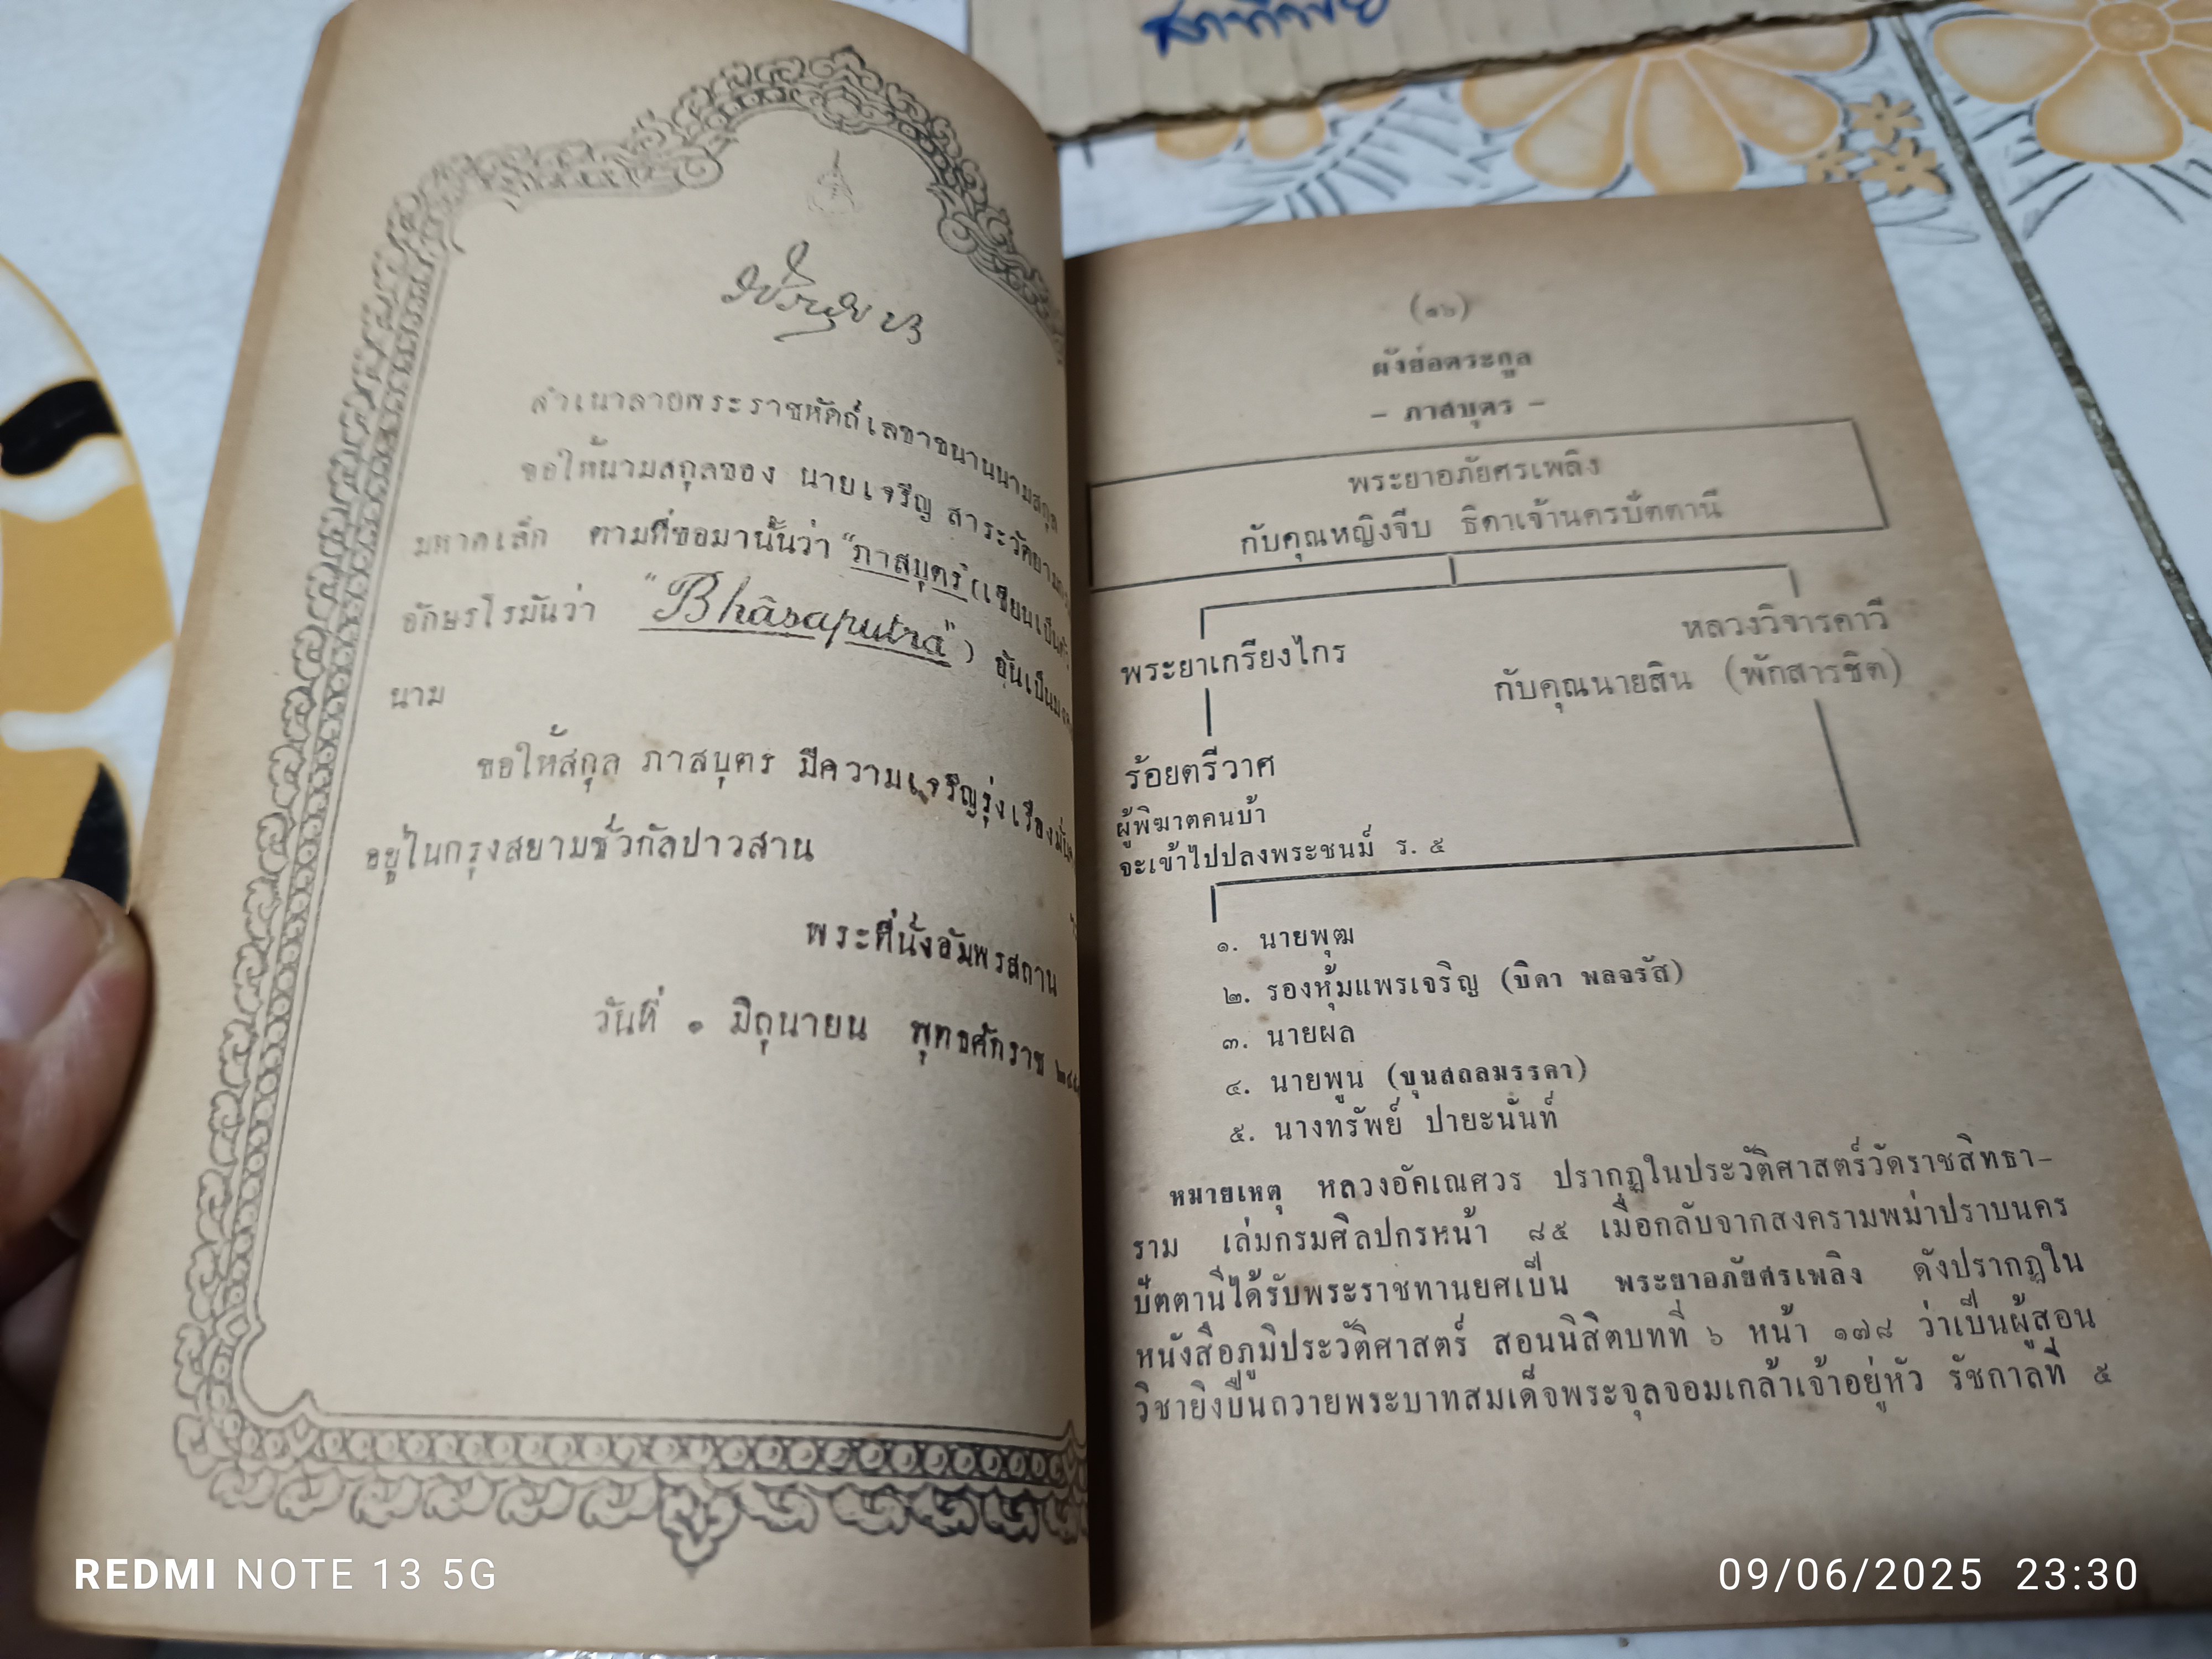 สำเนาลายพระราชหัตถ์เลขาขนานนามสกุล
ขอให้นามสกุลของ นายเจริญ สาระวัตยาม
มหาดเล็ก ตามที่ขอมานั้นว่า "ภาสบุตร" (เขียนเป็นตัว
อักษรโรมันว่า "Bhâsaputra") อันเป็น
นาม
ขอให้สกุล ภาสบุตร มีความเจริญรุ่งเรืองมั่นคง
อยู่ในกรุงสยามชั่วกัลปาวสาน
พระที่นั่งอัมพรสถาน
วันที่ ๑ มิถุนายน พุทธศักราช
(๑๖)
ผังย่อตระกูล
– ภาสบุตร –
พระยาอภัยศรเพลิง
กับคุณหญิงจีบ ธิดาเจ้านครปัตตานี
พระยาเกรียงไกร
หลวงวิจารคาวี
กับคุณนายสิน (พักสารชิต)
ร้อยตรีวาศ
ผู้พิฆาตคนบ้า
จะเข้าไปปลงพระชนม์ ร. ๕
๑. นายพุฒ
๒. รองหุ้มแพรเจริญ (บิดา พลจรัส)
๓. นายผล
๔. นายพูน (ขุนสถลมรรคา)
๕. นางทรัพย์ ปายะนันท์
หมายเหตุ หลวงอัคเณศวร ปรากฏในประวัติศาสตร์วัดราชสิทธา–
ราม เล่มกรมศิลปกรหน้า ๘๕ เมื่อกลับจากสงครามพม่าปราบนคร
ปัตตานีได้รับพระราชทานยศเป็น พระยาอภัยศรเพลิง ดังปรากฏใน
หนังสือภูมิประวัติศาสตร์ สอนนิสิตบทที่ ๖ หน้า ๑๗๘ ว่าเป็นผู้สอน
วิชายิงปืนถวายพระบาทสมเด็จพระจุลจอมเกล้าเจ้าอยู่หัว รัชกาลที่ ๕
REDMI NOTE 13 5G
09/06/2025 23:30